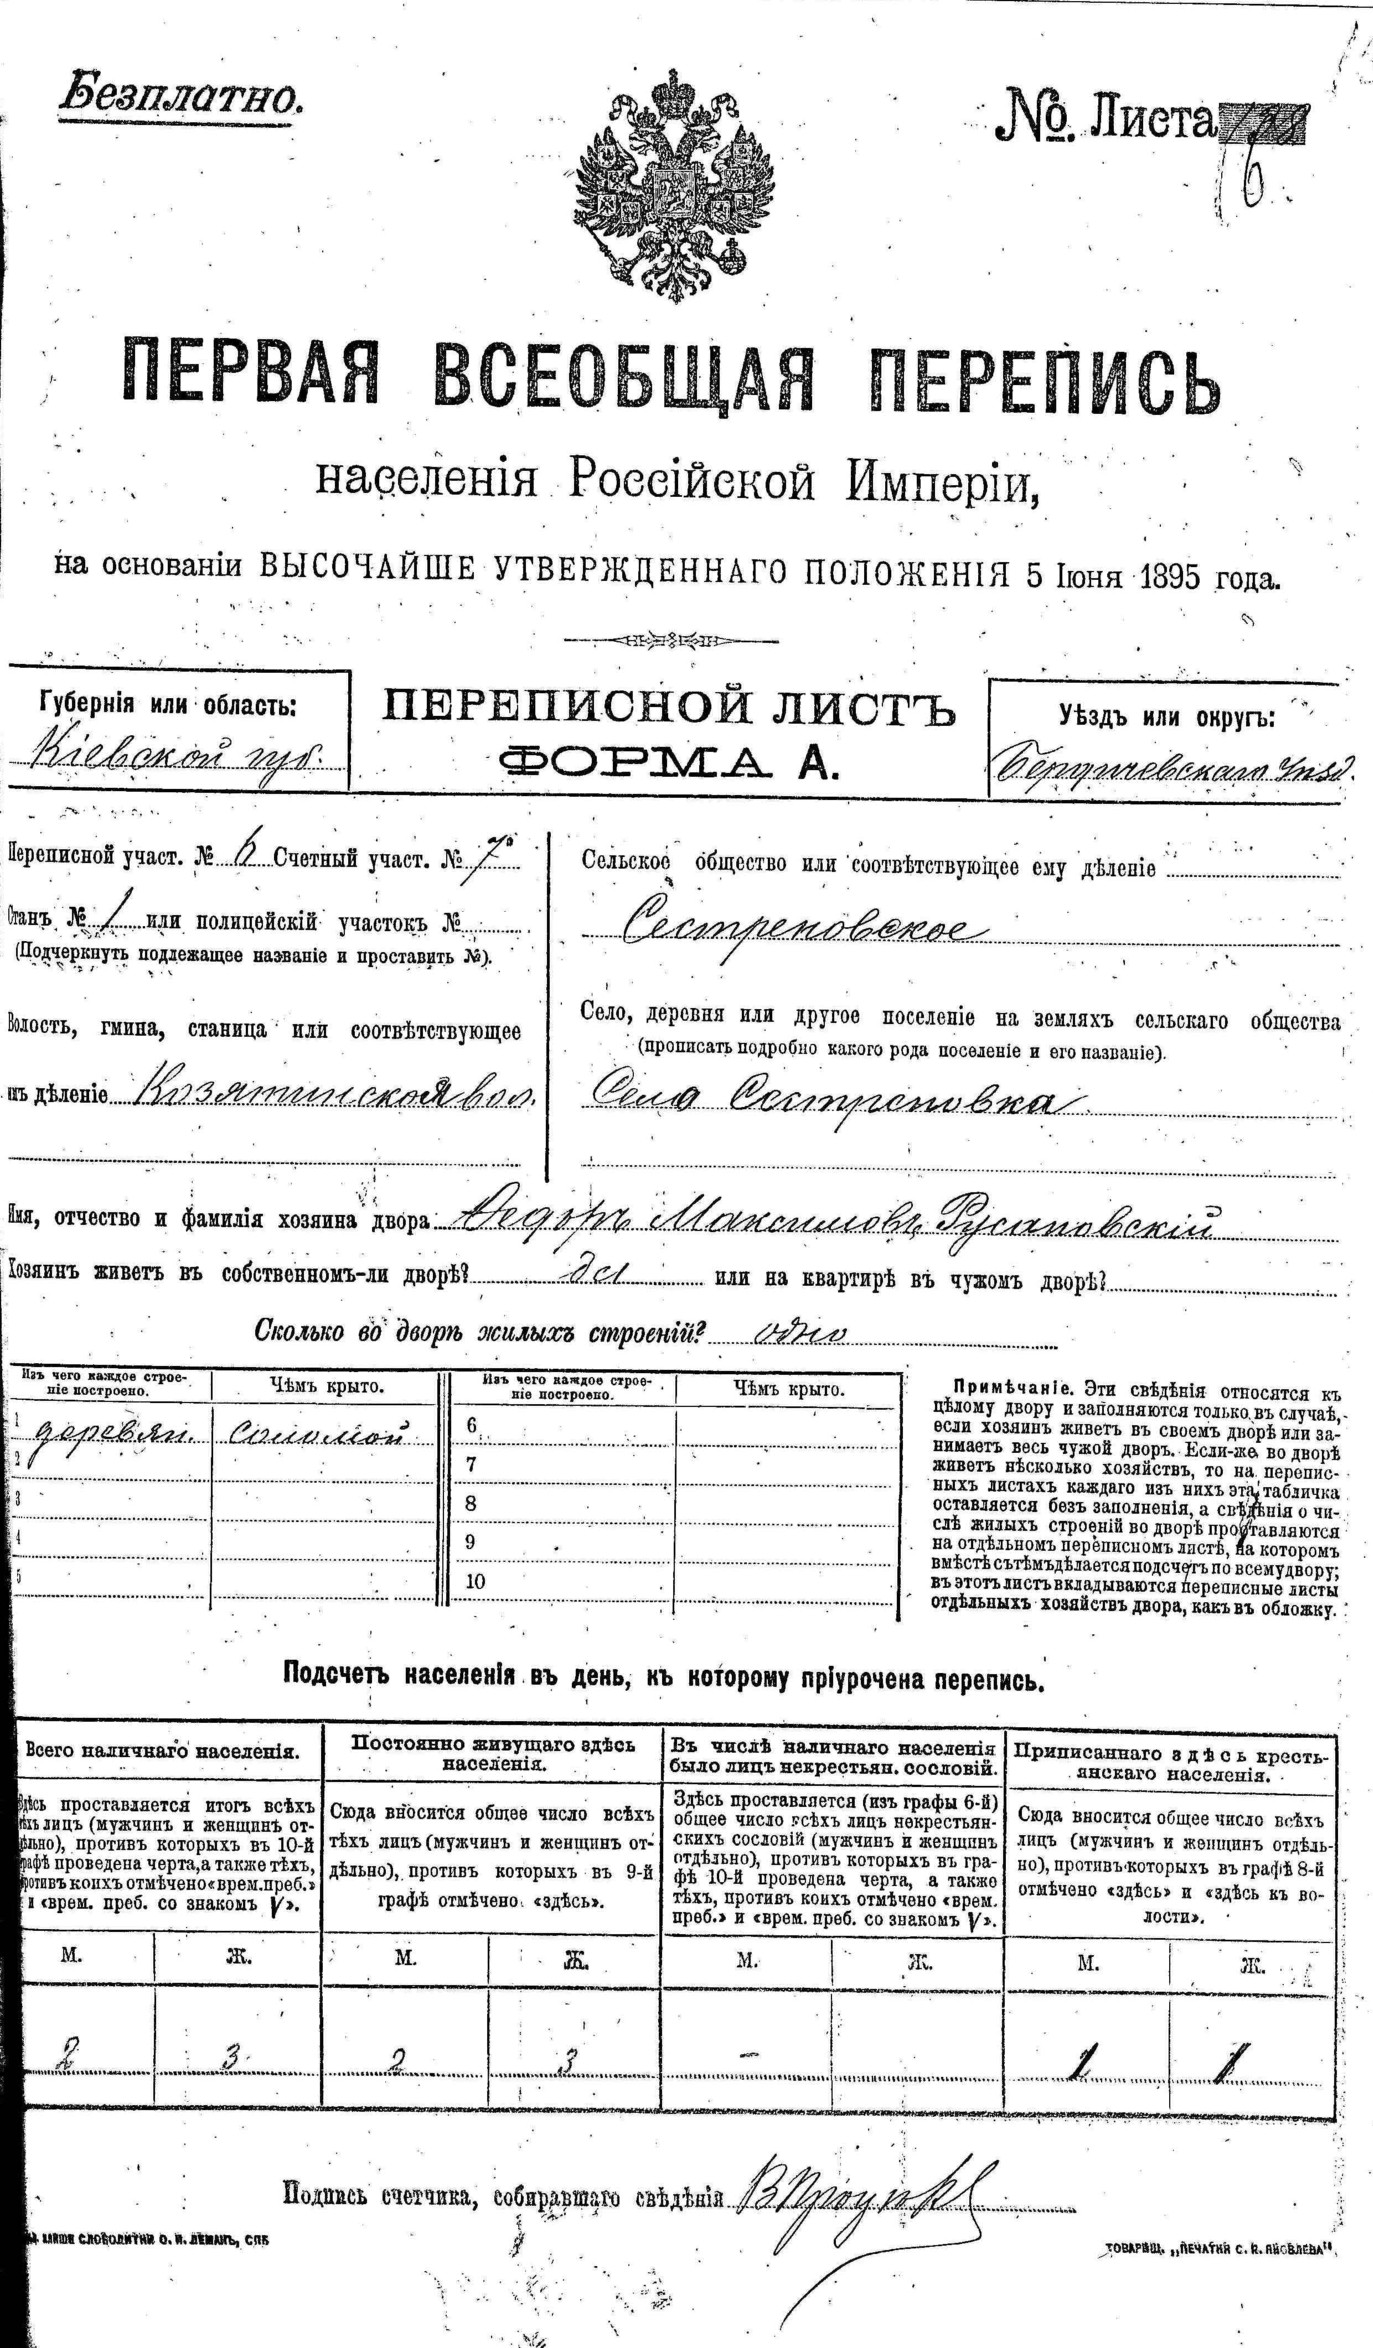 Безплатно.
№. Листа
16.
ПЕРВАЯ ВСЕОБЩАЯ ПЕРЕПИСЬ
населенія Россійской Имперіи,
на основаніи ВЫСОЧАЙШЕ УТВЕРЖДЕННАГО ПОЛОЖЕНІЯ 5 Іюня 1895 года.
Губернія или область:
Кіевской губ.
ПЕРЕПИСНОЙ ЛИСТЪ
ФОРМА А.
Уѣздъ или округъ:
Бердичевскаго Уѣзд.
Переписной участ. № 6 Счетный участ. № 7
Станъ № 1 или полицейскій участокъ №
(Подчеркнуть подлежащее названіе и проставить №).
Волость, гмина, станица или соотвѣтствующее
имъ дѣленіе Козятинской вол.
Сельское общество или соотвѣтствующее ему дѣленіе
Сестреновское
Село, деревня или другое поселеніе на земляхъ сельскаго общества
(прописать подробно какого рода поселеніе и его названіе).
Село Сестреновка
Имя, отчество и фамилія хозяина двора Ѳедоръ Максимовъ Русановскій
Хозяинъ живетъ въ собственномъ-ли дворѣ? да или на квартирѣ въ чужомъ дворѣ?
Сколько во дворѣ жилыхъ строеній? одно
Изъ чего каждое строе-
ніе построено.
Чѣмъ крыто.
Изъ чего каждое строе-
ніе построено.
Чѣмъ крыто.
1 деревян. соломой
2
3
4
5
6
7
8
9
10
Примѣчаніе. Эти свѣдѣнія относятся къ
цѣлому двору и заполняются только въ случаѣ,
если хозяинъ живетъ въ своемъ дворѣ или за-
нимаетъ весь чужой дворъ. Если-же во дворѣ
живетъ нѣсколько хозяйствъ, то на перепис-
ныхъ листахъ каждаго изъ нихъ эта табличка
оставляется безъ заполненія, а свѣдѣнія о чи-
слѣ жилыхъ строеній во дворѣ проставляются
на отдѣльномъ переписномъ листѣ, на которомъ
вмѣстѣ съ тѣмъ дѣлается подсчетъ по всему двору;
въ этотъ листъ вкладываются переписные листы
отдѣльныхъ хозяйствъ двора, какъ въ обложку.
Подсчетъ населенія въ день, къ которому пріурочена перепись.
Всего наличнаго населенія.
Здѣсь проставляется итогъ всѣхъ
тѣхъ лицъ (мужчинъ и женщинъ от-
дѣльно), противъ которыхъ въ 10-й
графѣ проведена черта, а также тѣхъ,
противъ коихъ отмѣчено «врем. преб.»
и «врем. преб. со знакомъ V».
М. Ж.
2 3
Постоянно живущаго здѣсь
населенія.
Сюда вносится общее число всѣхъ
тѣхъ лицъ (мужчинъ и женщинъ от-
дѣльно), противъ которыхъ въ 9-й
графѣ отмѣчено «здѣсь».
М. Ж.
2 3
Въ числѣ наличнаго населенія
было лицъ некрестьян. сословій.
Здѣсь проставляется (изъ графы 6-й)
общее число всѣхъ лицъ некрестьян-
скихъ сословій (мужчинъ и женщинъ
отдѣльно), противъ которыхъ въ гра-
фѣ 10-й проведена черта, а также
тѣхъ, противъ коихъ отмѣчено «врем.
преб.» и «врем. преб. со знакомъ V».
М. Ж.
–
Приписаннаго здѣсь кресть-
янскаго населенія.
Сюда вносится общее число всѣхъ
лицъ (мужчинъ и женщинъ отдѣль-
но), противъ которыхъ въ графѣ 8-й
отмѣчено «здѣсь» и «здѣсь къ во-
лости».
М. Ж.
1 1
Подпись счетчика, собиравшаго свѣдѣнія
СЛОВОЛИТНИ О. И. ЛЕМАНЪ, СПБ
ТОВАРИЩ. „ПЕЧАТНИ С. П. ЯКОВЛЕВА“.